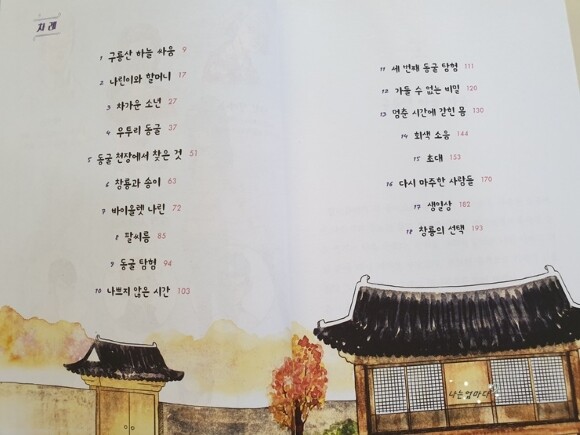 차례
1 구룡산 하늘 싸움 9
2 나린이와 할머니 17
3 차가운 소년 27
4 우투리 동굴 37
5 동굴 천장에서 찾은 것 51
6 창룡과 송이 63
7 바이올렛 나린 72
8 팔씨름 85
9 동굴 탐험 94
10 나쁘지 않은 시간 103
11 세 번째 동굴 탐험 111
12 가둘 수 없는 비밀 120
13 멈춘 시간에 갇힌 몸 130
14 회색 소음 144
15 초대 153
16 다시 마주한 사람들 170
17 생일상 182
18 창룡의 선택 193
나는엄마다